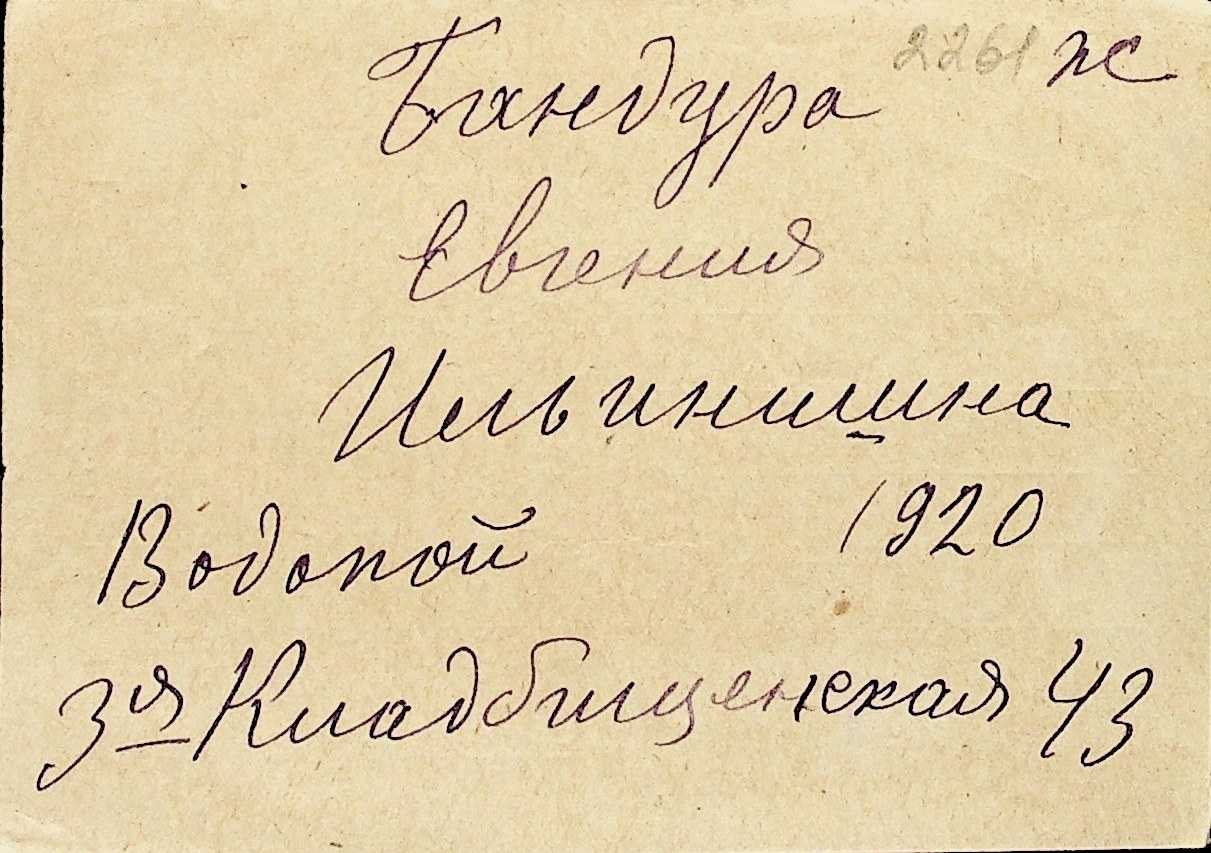 Бандура 2261 ж
Евгения
Ильинишна
Водопой 1920
3я Кладбищенская 43